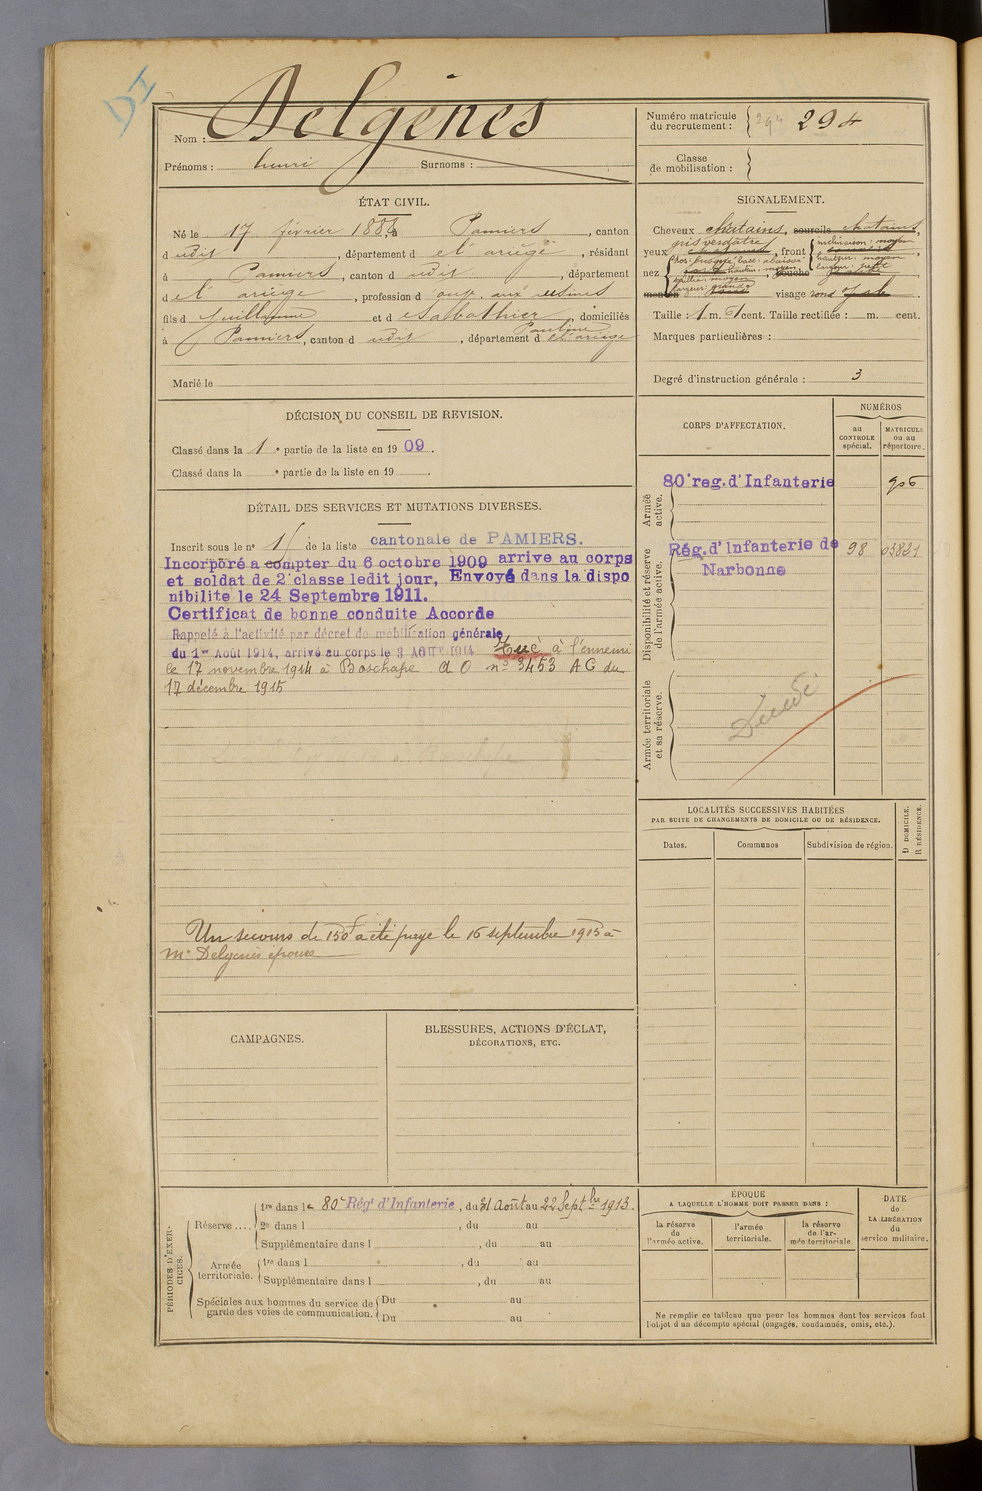 DI
Nom : Delgènes
Prénoms : henri Surnoms :
Numéro matricule du recrutement : 294 294
Classe de mobilisation :
ÉTAT CIVIL.
Né le 17 février 1888, à Pamiers, canton
d udit, département d e l'ariège, résidant
à Pamiers, canton d udit, département
d e l' ariège, profession d' aux usines
fils d Guillaume et d e Sabathier Pauline, domiciliés
à Pamiers, canton d udit, département d e l'ariège
Marié le
SIGNALEMENT.
Cheveux chatains, sourcils chatains,
yeux gris verdâtre, front inclinaison : moyen
hauteur : moyen
largeur : petit
nez dos : busqué, base : abaissé
hauteur : moyen
saillie : moyen
largeur : grande
bouche
menton visage rond
Taille : 1 m. cent. Taille rectifiée : m. cent.
Marques particulières :
Degré d'instruction générale : 3
DÉCISION DU CONSEIL DE REVISION.
Classé dans la 1e partie de la liste en 1909.
Classé dans la e partie de la liste en 19 .
CORPS D'AFFECTATION.
NUMÉROS
au CONTROLE spécial.
MATRICULE ou au répertoire.
Armée active.
80e reg. d'Infanterie 906
Disponibilité et réserve de l'armée active.
Rég. d'Infanterie de Narbonne 98 03821
Armée territoriale et sa réserve.
Décédé
DÉTAIL DES SERVICES ET MUTATIONS DIVERSES.
Inscrit sous le n° 15 de la liste cantonale de PAMIERS.
Incorporé a compter du 6 octobre 1909 arrive au corps
et soldat de 2e classe ledit jour, Envoyé dans la dispo
nibilite le 24 Septembre 1911.
Certificat de bonne conduite Accorde
Rappelé à l'activité par décret de mobilisation générale
du 1er Août 1914, arrivé au corps le 3 AOUT 1914 Tué à l'ennemi
le 17 novembre 1914 à Boschape a O n° 3453 A C du
17 décembre 1915
Un secours de 150f a été payé le 16 septembre 1915 à
Me Delgènes épouse
LOCALITÉS SUCCESSIVES HABITÉES
PAR SUITE DE CHANGEMENTS DE DOMICILE OU DE RÉSIDENCE.
Dates. Communes Subdivision de région. D DOMICILE. R RÉSIDENCE.
CAMPAGNES.
BLESSURES, ACTIONS D'ÉCLAT,
DÉCORATIONS, ETC.
PÉRIODES D'EXERCICES.
Réserve .... 1re dans le 80e Régt d'Infanterie, du 31 Août au 22 Septbre 1913.
2e dans l , du au
Supplémentaire dans l , du au
Armée territoriale. 1re dans l , du au
Supplémentaire dans l , du au
Spéciales aux hommes du service de garde des voies de communication. Du au
Du au
ÉPOQUE
A LAQUELLE L'HOMME DOIT PASSER DANS :
la réserve de l'armée active.
l'armée territoriale.
la réserve de l'armée territoriale.
DATE de LA LIBÉRATION du service militaire.
Ne remplir ce tableau que pour les hommes dont les services font
l'objet d'un décompte spécial (engagés, condamnés, omis, etc.).